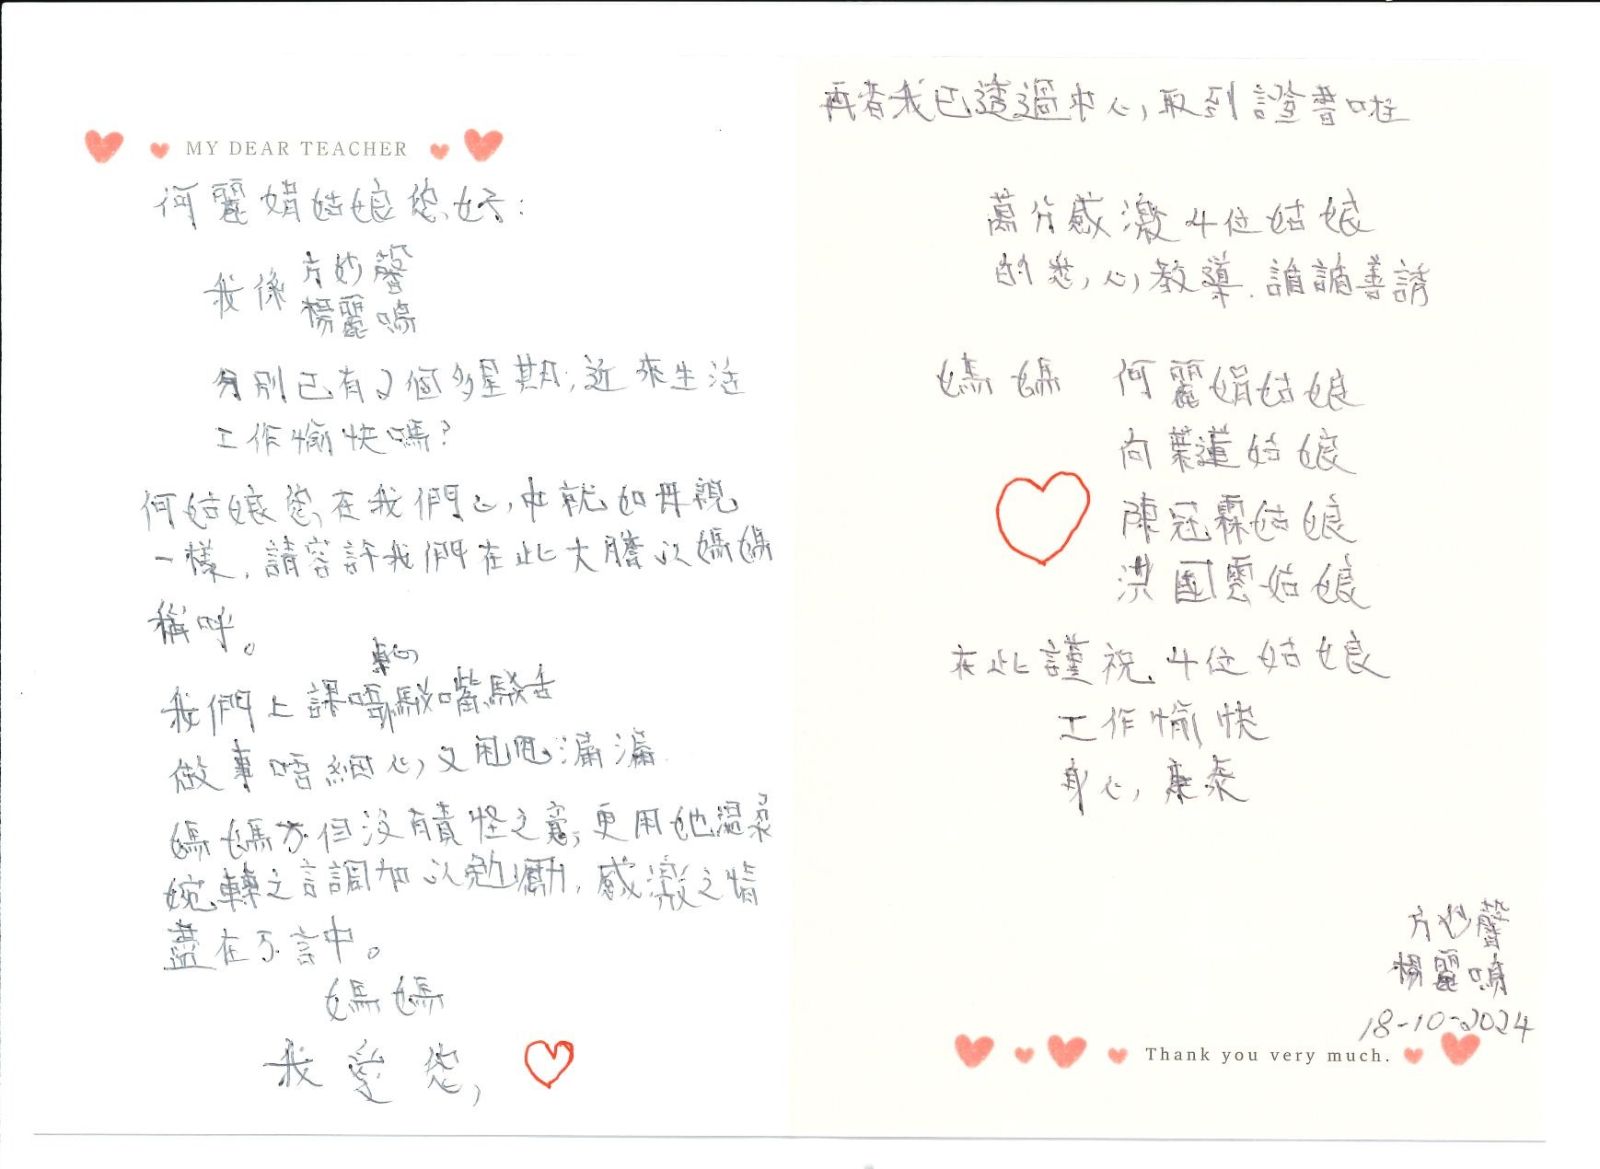 MY DEAR TEACHER
何麗娟姑娘您好:
我係 方妙馨
楊麗鳴
分別已有2個多星期,近來生活
工作愉快嗎?
何姑娘您在我們心中就如母親
一樣,請容許我們在此大膽以媽媽
稱呼。
我們上課唔專心駁嘴駁舌
做事唔細心又甩甩漏漏
媽媽不但沒有責怪之意,更用她溫柔
婉轉之言調加以勉勵,感激之情
盡在不言中。
媽媽
我愛您
再者我已透過中心,取到證書啦
萬分感激4位姑娘
的悉心教導.諄諄善誘
媽媽 何麗娟姑娘
向葉蓮姑娘
陳冠霖姑娘
洪國雲姑娘
在此謹祝4位姑娘
工作愉快
身心康泰
方妙馨
楊麗鳴
18-10-2024
Thank you very much.